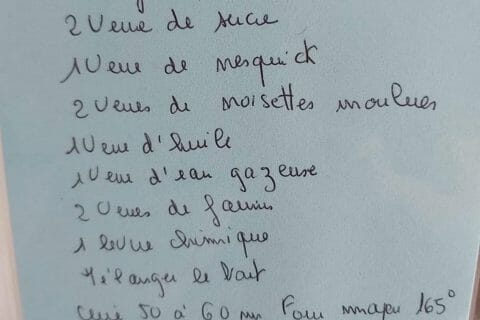 2 Verre de sucre
1 Verre de nesquick
2 Verres de noisettes moulues
1 Verre d'huile
1 Verre d'eau gazeuse
2 Verres de farine
1 levure chimique
Mélanger le tout
Cuire 50 à 60 mn Four moyen 165°